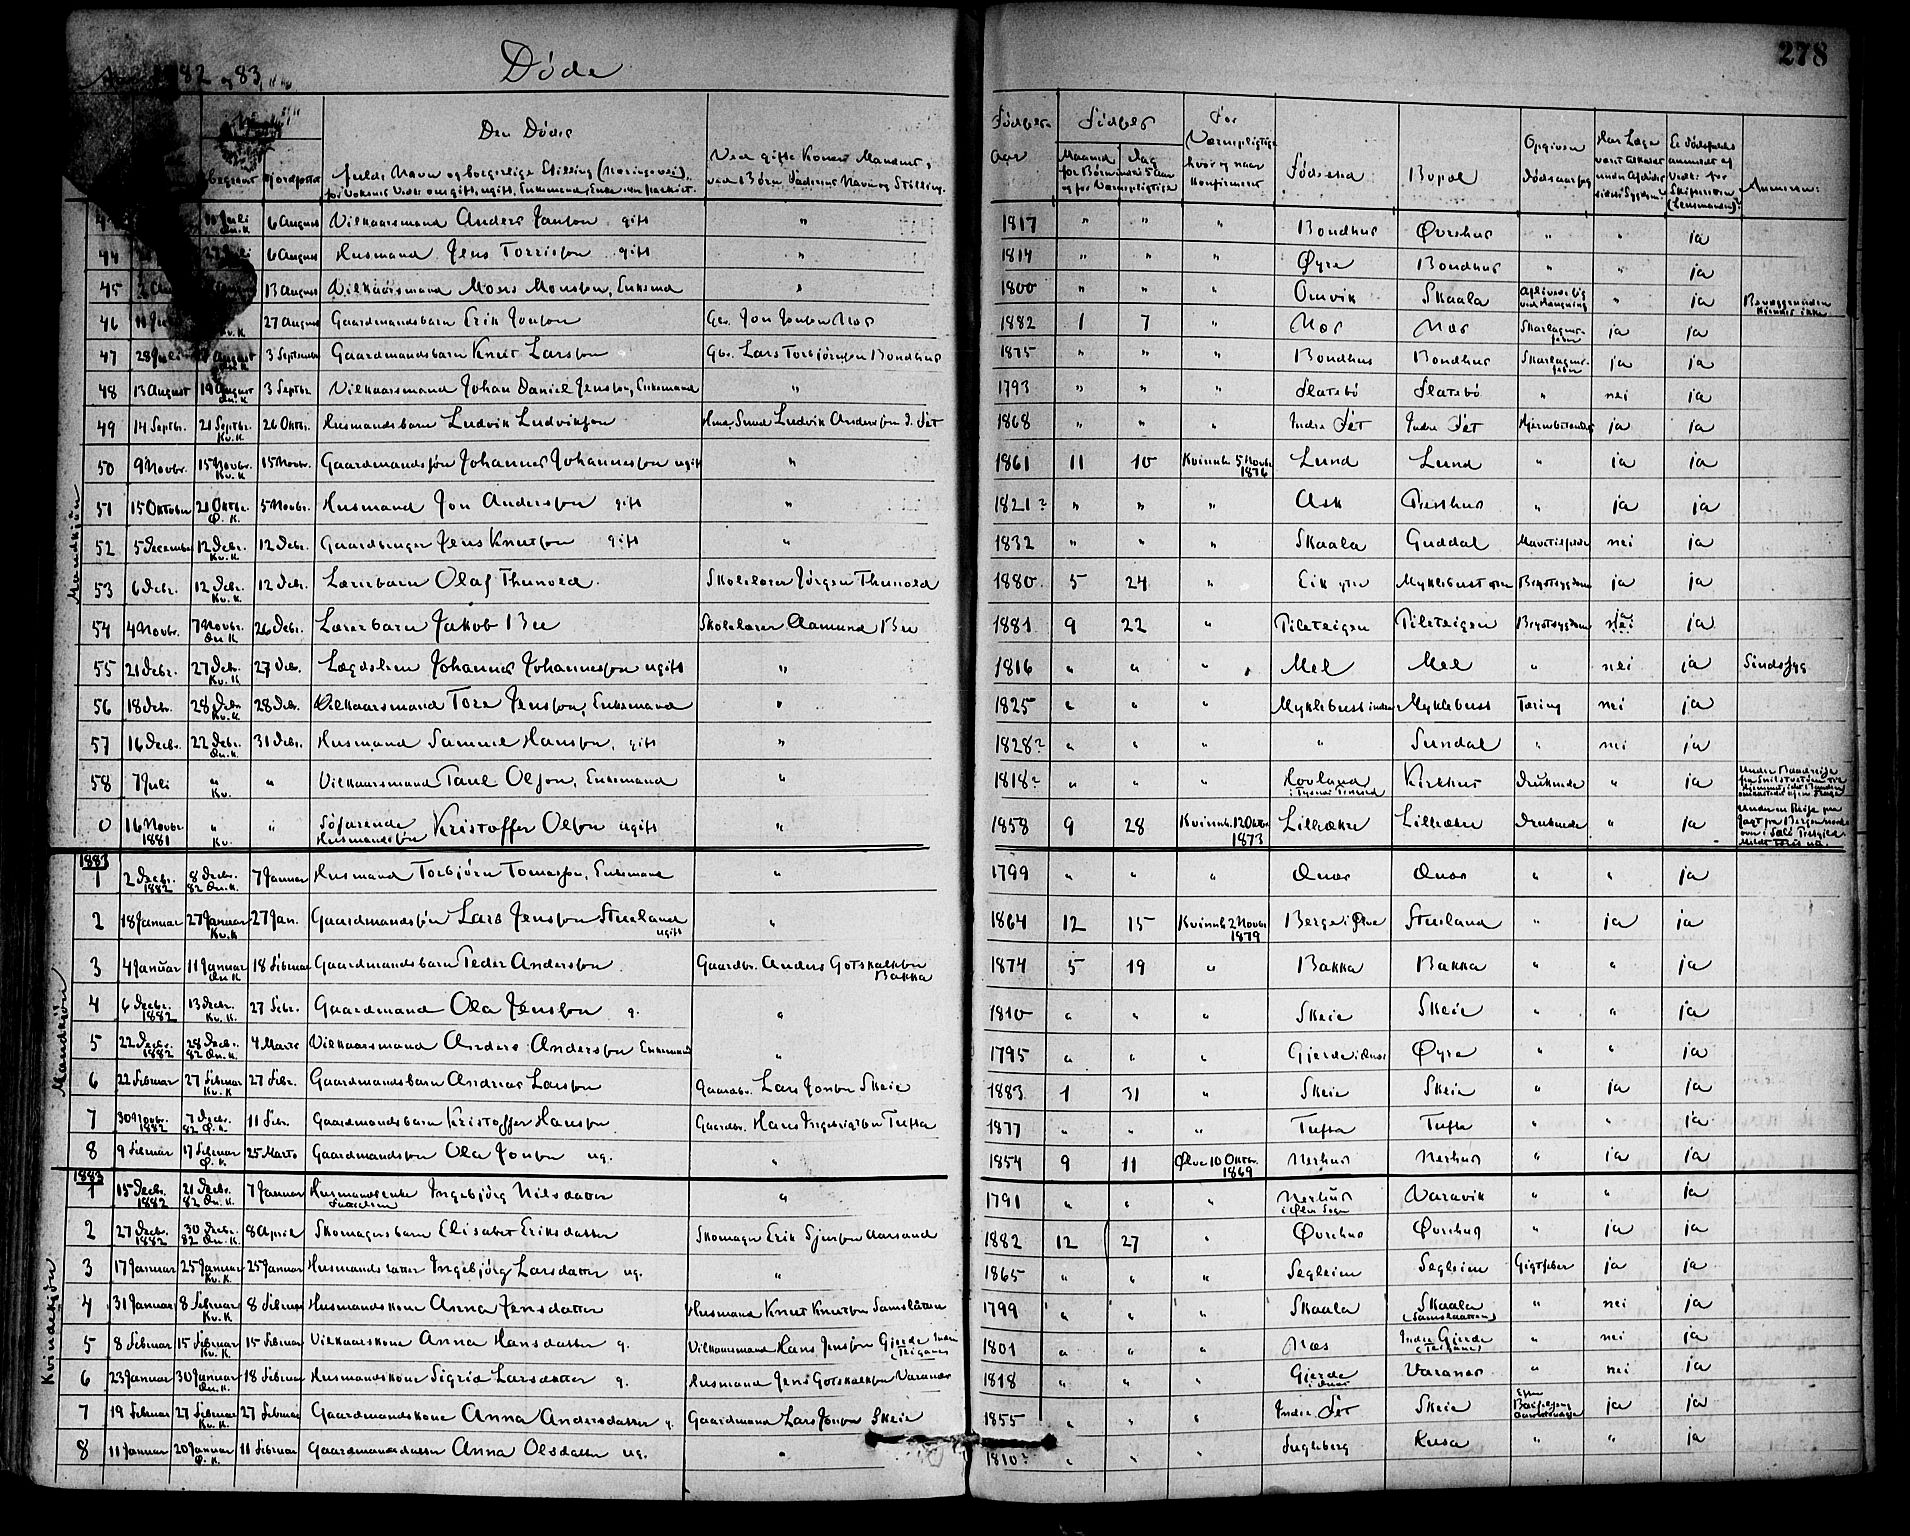 278
82 og 83
Døde
Den Dødes
fulde Navn og borgerlige Stilling (Næringsvei),
Ved gifte Koner Mandens,
ved Børn Faderens Navn og Stilling.
Fødsels-Aar
Fødsels
Maaned
Dag
For Værnepligtige hvor og naar konfirmeret
Fødested
Bopæl
Opgiven Dødsaarsag
Anmerkn:
begravet
jordfæstet
Mandkjøn
Juli 6 August Vilkaarsmand Anders Janson gift " 1817 " " " Bondhus Øvrehus " " ja
44 6 August Husmand Jens Torrisson gift " 1814 " " " Øyre Bondhus " " ja
45 13 August Vilkaarsmand Moses Monsson, Enkemd " 1800 " " " Omvik Skaala ved Hængning " ja
46 27 August Gaardmandsbarn Erik Jonson Jon Jonson Nes 1882 1 7 " Nes Nes Skarlagensfeber ja ja
47 28 Juli August 3 September Gaardmandsbarn Knut Larsson Gbr. Lars Torbjørnson Bondhus 1875 " " " Bondhus Bondhus Skarlagensfeber ja ja
48 13 August 19 August Øn. K 3 Septbr. Vilkaarsmand Johan Daniel Jensson, Enkemand " 1793 " " " Flatebø Flatebø " nei ja
49 14 Septbr. 21 Septbr. Kv. K 26 Oktbr. Husmandsbarn Ludvik Ludvikson Ludvik Anderson I. Set 1868 " " " Indre Set Indre Set ja ja
50 9 Novbr. 15 Novbr. Kv. K 15 Novbr. Gaardmandssøn Johannes Johannesson ugift " 1861 11 10 Kvinnh. 5 Novbr 1876 Lund Lund " ja ja
51 15 Oktober 21 Oktbr. Ø. K. 5 Novbr. Husmand Jon Anderson gift " 1821? " " " Ask Presthus " ja ja
52 5 December 12 Decbr. Kv. K. 12 Decbr. Gaardbruger Jens Knutson gift " 1832 " " " Skaala Guddal nei ja
53 6 Decbr. 12 Decbr. Kv. K. 12 Decbr. Lærerbarn Olaf Thunold Skolelærer Jørgen Thunold 1880 5 24 " Eik ytre Myklebust ytre Brystsygdom ja ja
54 4 Novbr. 7 Novbr. Øn. K 26 Decbr. Lærerbarn Jakob Bu Skolelærer Aamund Bu 1881 9 22 " Pileteigen Pileteigen Brystsygdom nei ja
55 21 Decbr. 27 Decbr. Kv. K 27 Decbr. Lægdslem Johannes Johannesson ugift " 1816 " " " Mel Mel " nei ja Sindssyg
56 18 Decbr. 28 Decbr. Kv. K 28 Decbr. Vilkaarsmand Tore Jensson, Enkemand " 1825 " " " Myklebust indre Myklebust Tæring nei ja
57 16 Decbr. 22 Decbr. Øn. K. 31 Decbr. Husmand Samuel Hansson, gift " 1828? " " " " Sundal " nei ja
58 7 Juli " Kv. " Vilkaarsmand Paul Olson, Enkemand " 1818? " " " Hovland i Tysnes Prestegj. Kirkhus Druknede " ja
0 16 Novbr 1881 " Kv. " Søfarende Husmandssøn Kristoffer Olson ugift " 1858 9 28 Kvinnh. 12 Oktbr 1873 Lilleækre Lilleækre Druknede " ja
1883
Mandkjøn
1 2 Decbr. 1882 8 Decbr. 82 Øn. K. 7 Januar Husmand Torbjørn Tomasson, Enkemand " 1799 " " " Ænes Ænes " " ja
2 18 Januar 27 Januar Kv. K 27 Jan. Gaardmandssøn Lars Jensson Stueland ugift " 1864 12 15 Kvinnh 2 Novbr 1879 Berge i Ølve Stueland " ja ja
3 4 Januar 11 Januar Øn. K 18 Februar Gaardmandsbarn Peder Anderson Gaardbr. Anders Gotskalkson Bakka 1874 5 19 " Bakka Bakka " " ja
4 6 Decbr. 1882 13 Decbr. Kv. K. 27 Febr. Gaardmand Ola Jensson g. " 1810 " " " Skeie Skeie " " ja
5 22 Decbr. 1882 28 Decbr. 82 Øn. K. 4 Marts Vilkaarsmand Anders Anderson Enkemand " 1795 " " " Gjerde i Ænes Øyre " " ja
6 22 Februar 27 Februar Kv. K 27 Febr. Gaardmandsbarn Andreas Larsson Gaardbr. Lars Jonson Skeie 1883 1 31 " Skeie Skeie " ja ja
7 30 Novbr. 1882 7 Decbr. 82 Ø. K. 11 Febr. Gaardmandsbarn Kristoffer Hansson Gaardbr. Hans Ingebrigtson Tufta 1877 " " " Tufta Tufta " " ja
8 9 Februar 17 Februar Ø. K. 25 Marts Gaardmandssøn Ola Jonson ug. " 1854 9 11 Ølve 10 Oktbr. 1869 Nerhus Nerhus " ja ja
1883
Kvindekjøn
1 15 Decbr. 1882 21 Decbr. 82 Øn. K. 7 Januar Husmandsenke Ingebjørg Nilsdatter " 1791 " " " Nerhus i Ølve Sogn Varavik " " ja
2 27 Decbr. 1882 30 Decbr. 82 Øn. K. 8 April Skomagersbarn Elisabet Eriksdatter Skomager Erik Sjurson Aarsand 1882 12 27 " Øvrehus Øvrehus " ja ja
3 17 Januar 25 Januar Kv. K. 25 Januar Husmandsdatter Ingebjørg Larsdatter ug. " 1865 " " " Segleim Segleim Gigtfeber ja ja
4 31 Januar 8 Februar Kv. K 8 Februar Husmandskone Anna Jensdatter Husmand Knut Knutson Samslåtten 1799 " " " Skaala Skaala (Samslaatten) " nei ja
5 8 Februar 15 Februar Kv. K. 15 Februar Vilkaarskone Anna Hansdatter g. Vilkaarsmand Hans Jensson Gjerde Indre (Teigane) 1801 " " " Næs Indre Gjerde (Teigane) " nei ja
6 23 Januar 30 Januar Øn. K. 18 Februar Husmandskone Sigrid Larsdatter g. Husmand Jens Gotskalkson Varanes 1818 " " " Gjerde i Ænes Varanes nei ja
7 19 Februar 27 Februar Kv. K. 27 Februar Gaardmandskone Anna Andersdatter g. Gaardmand Lars Jonson Skeie 1855 " " " Indre Set Skeie Efter ja ja
8 11 Januar 20 Januar Ø. K. 11 Februar Gaardmandsdatter Anna Olsdatter ug. " 1810? " " " Fugleberg Kusa " " ja